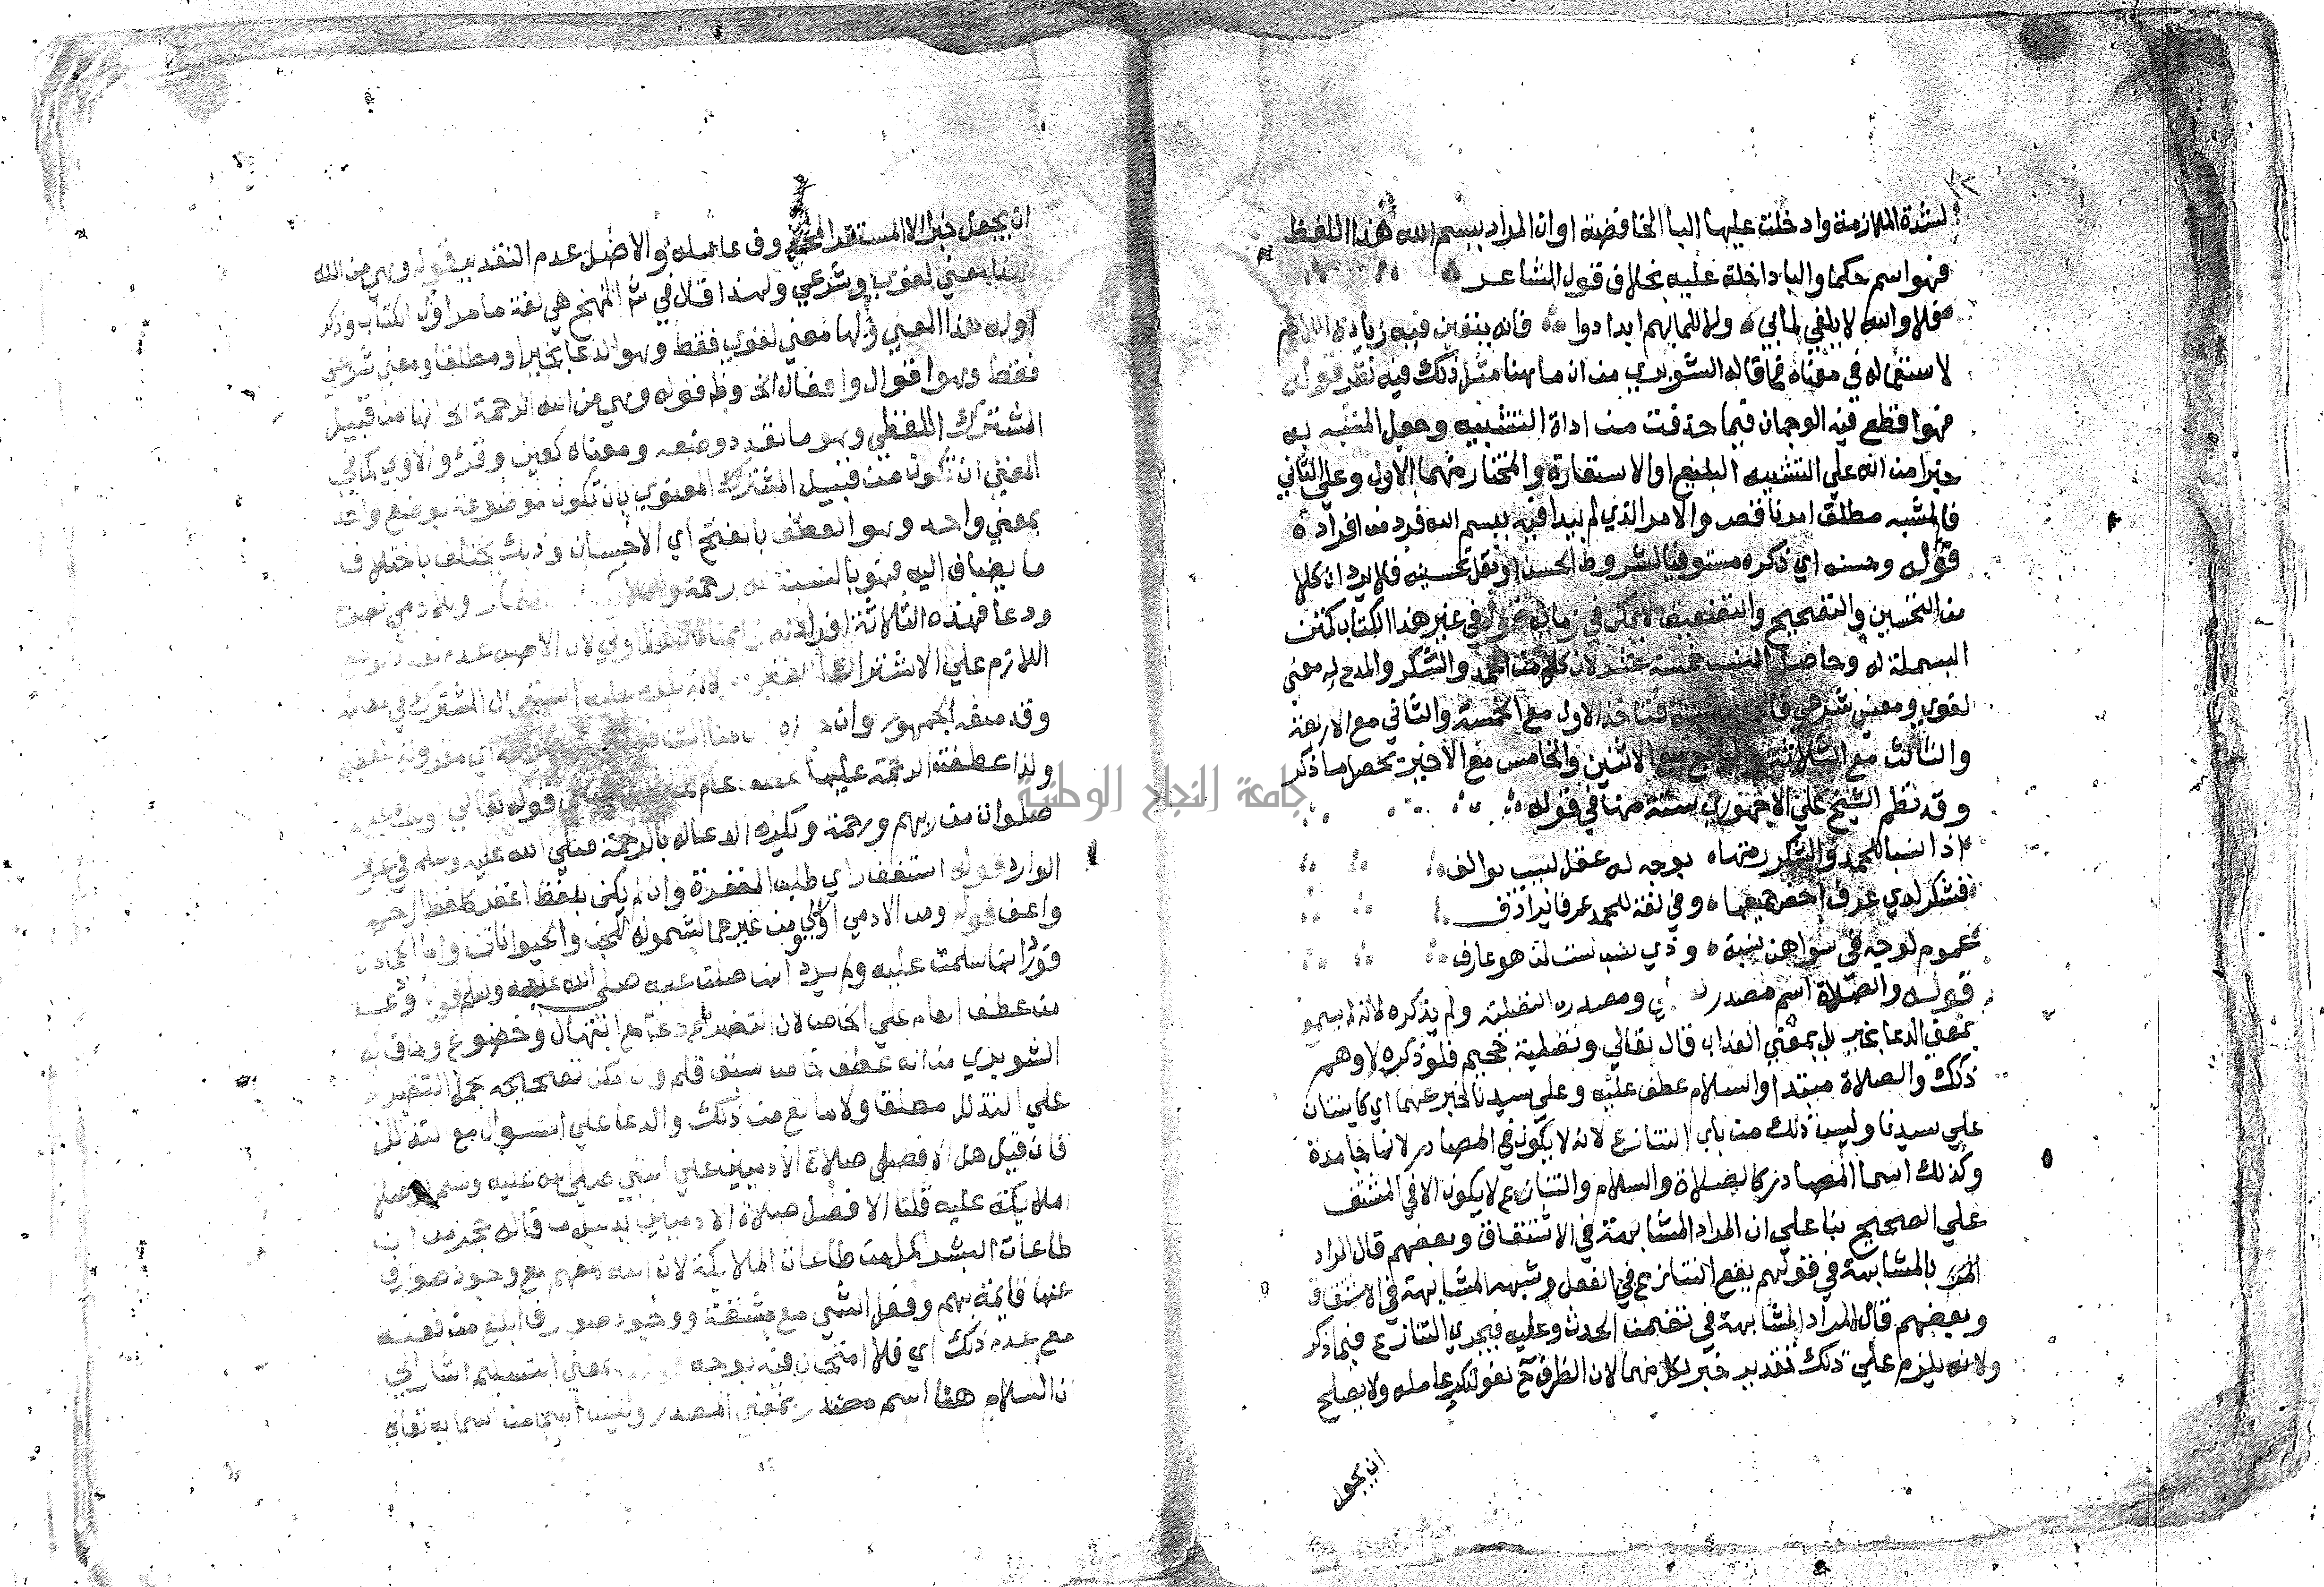 لشدة الملازمة وادخلت عليها البا الخافضة او ان المراد ببسم الله هذا اللفظ
فهو اسم حكما والبا داخلة عليه بخلاف قول الشاعر
فلا والله لا يلفي لما بي ولا للما بهم ابدا دوا فانه يتعين فيه زيادة اللام
لاستعماله في معناه فما قاله الشوبري من ان ما هنا مثل ذلك فيه نظر قوله
فهو اقطع فيه الوجهان فيما حذفت منه اداة التشبيه وجعل المشبه به
خبرا من انه علي التشبيه البليغ او الاستعارة والمختار منهما الاول وعلي الثاني
فالمشبه مطلق امر ناقص والامر الذي لم يبدا فيه ببسم الله فرد من افراده
قوله وحسنه اي ذكره مستوفيا لشروط الحسن او نقل تحسينه فلا يرد ان كلا
من التحسين والتصحيح والتضعيف لا يمكن في زمانه قوله في غير هذا الكتاب كتبت
البسملة له وحاصل النسب خمسة عشر لان كلا من الحمد والشكر والمدح له معني
لغوي ومعني شرعي فتاخذ الاول مع الخمسة والثاني مع الاربعة
والثالث مع الثلاثة والرابع مع الاثنين والخامس مع الاخير تحصل ما ذكر
وقد نظم الشيخ علي الاجهوري ستة منها في قوله
اذا نسبا للحمد والشكر رمتها بوجه له عقل لبيب يوالف
فشكر لدي عرف اخص جميعها وفي لغة للحمد عرفا يرادف
عموم لوجه في سواهن نسبة وذي نسب ست لمن هو عارف
قوله والصلاة اسم مصدر ومصدره التصلية ولم يذكره لانه لم يسمع
بمعني الدعا بخير بل بمعني العذاب قال تعالي وتصلية جحيم فلو ذكره لاوهم
ذلك والصلاة مبتدا والسلام عطف عليه وعلي سيدنا الخبر عنهما اي كاينتان
علي سيدنا وليس ذلك من باب التنازع لانه لا يكون في المصادر لانها جامدة
وكذلك اسما المصادر كالصلاة والسلام والتنازع لا يكون الا في المشتق
علي الصحيح بنا علي ان المراد المشابهة في الاشتقاق وبعضهم قال المراد
بالمشابهة في قولهم يقع التنازع في الفعل وشبهه المشابهة في الاشتقاق
وبعضهم قال المراد المشابهة في تضمن الحدث وعليه فيجري التنازع فيما ذكر
ولانه يلزم علي ذلك تقدير خبر لكل منهما لان الظرف ح لغو لذكر عامله ولا يصلح
ان يجعل
ان يجعل خبرا الا المستقر المحذوف عامله والاصل عدم التقدير قوله وهي من الله
بمعني لغوي وشرعي ولهذا قال في شرح المنهج هي لغة ما مر اول الكتاب وذكر
اوله هذا المعني ولها معني لغوي فقط وهو الدعا بخير او مطلقا ومعني شرعي
فقط وهو اقوال وافعال الخ وظ قوله وهي من الله الرحمة الخ انها من قبيل
المشترك اللفظي وهو ما تعدد وضعه ومعناه كعين وقرو والاولي كما في
المغني ان تكون من قبيل المشترك المعنوي بان تكون موضوعة بوضع واحد
بمعني واحد وهو العطف بالفتح اي الاحسان وذلك يختلف باختلاف
ما يضاف اليه فهو بالنسبة لله رحمة وللادمي تضرع
ودعا فهذه الثلاثة افراد لانه اولي لان الاصل عدم
اللازم علي الاشتراك استعمال المشترك في معانيه
وقد منعه الجمهور وان اي مقرونة بتعظيم
ولذا عطفت الرحمة عليها عطف عام قوله تعالي اوليك عليهم
صلوات من ربهم ورحمة ويكره الدعا له بالرحمة صلي الله عليه وسلم في غير
الوارد قوله استغفار اي طلب المغفرة وان لم يكن بلفظ اغفر كلفظ ارحم
واعف قوله ومن الادمي اولي من غيرهما لشموله للجن والحيوانات واما الجمادات
فورد انها سلمت عليه ولم يرد انها صلت عليه صلي الله عليه وسلم قوله ودعا
من عطف العام علي الخاص لان التضرع دعا مع ابتهال وخضوع وما قاله
الشوبري من انه عطف خاص سبق قلم وان امكن تصحيحه بحمل التضرع
علي التذلل مطلقا ولا مانع من ذلك والدعا علي السوال مع التذلل
فان قيل هل الافضل صلاة الادميين علي النبي صلي الله عليه وسلم او صلاة
الملايكة عليه قلنا الافضل صلاة الادميين بدليل ما قاله من ان
طاعات البشر اكمل من طاعات الملايكة لان الله معهم مع وجود صوارف
عنها قايمة بهم وفعل الشي مع مشقة ووجود صوارف ابلغ من فعله
مع عدم ذلك اي فلا امتحان فيه بوجه بمعني التسليم اشار الي
ان السلام هنا اسم مصدر بمعني المصدر وليس اسما من اسمايه تعالي
جامعة النجاح الوطنية